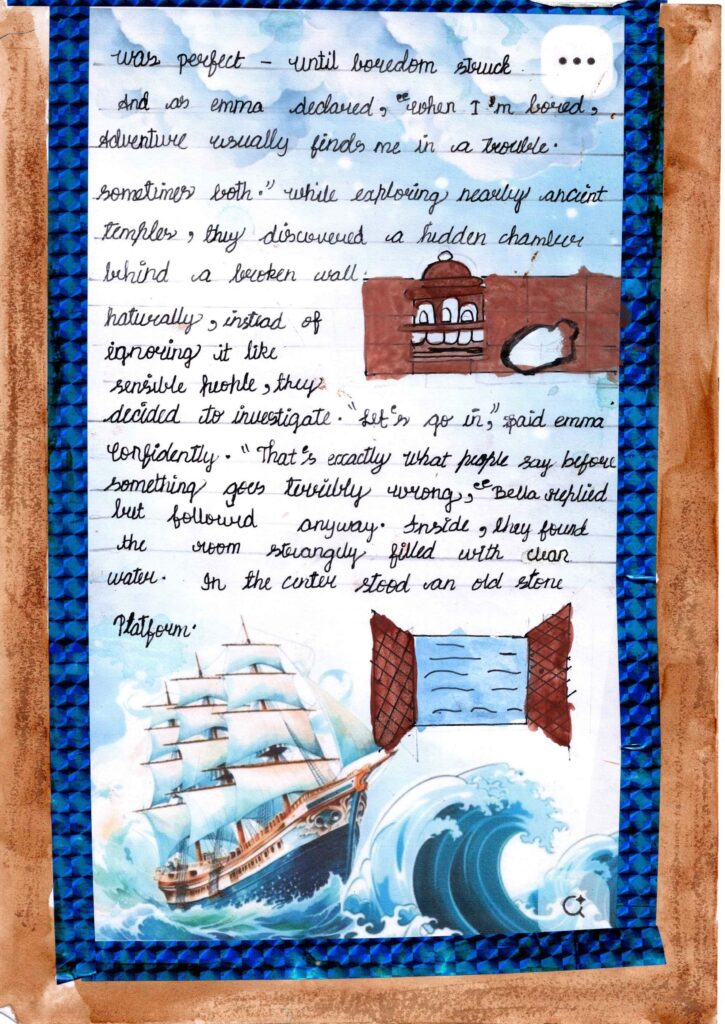 was perfect - until boredom struck.
And as emma declared, "when I'm bored,
Adventure usually finds me in a trouble.
sometimes both." while exploring nearly ancient
temples, they discovered a hidden chamber
behind a broken wall.
naturally, instead of
ignoring it like
sensible people, they
decided to investigate. "Let's go in," said emma
confidently. "That's exactly what people say before
something goes terribly wrong," Bella replied
but followed anyway. Inside, they found
the room strangely filled with clean
water. In the center stood an old stone
Platform.